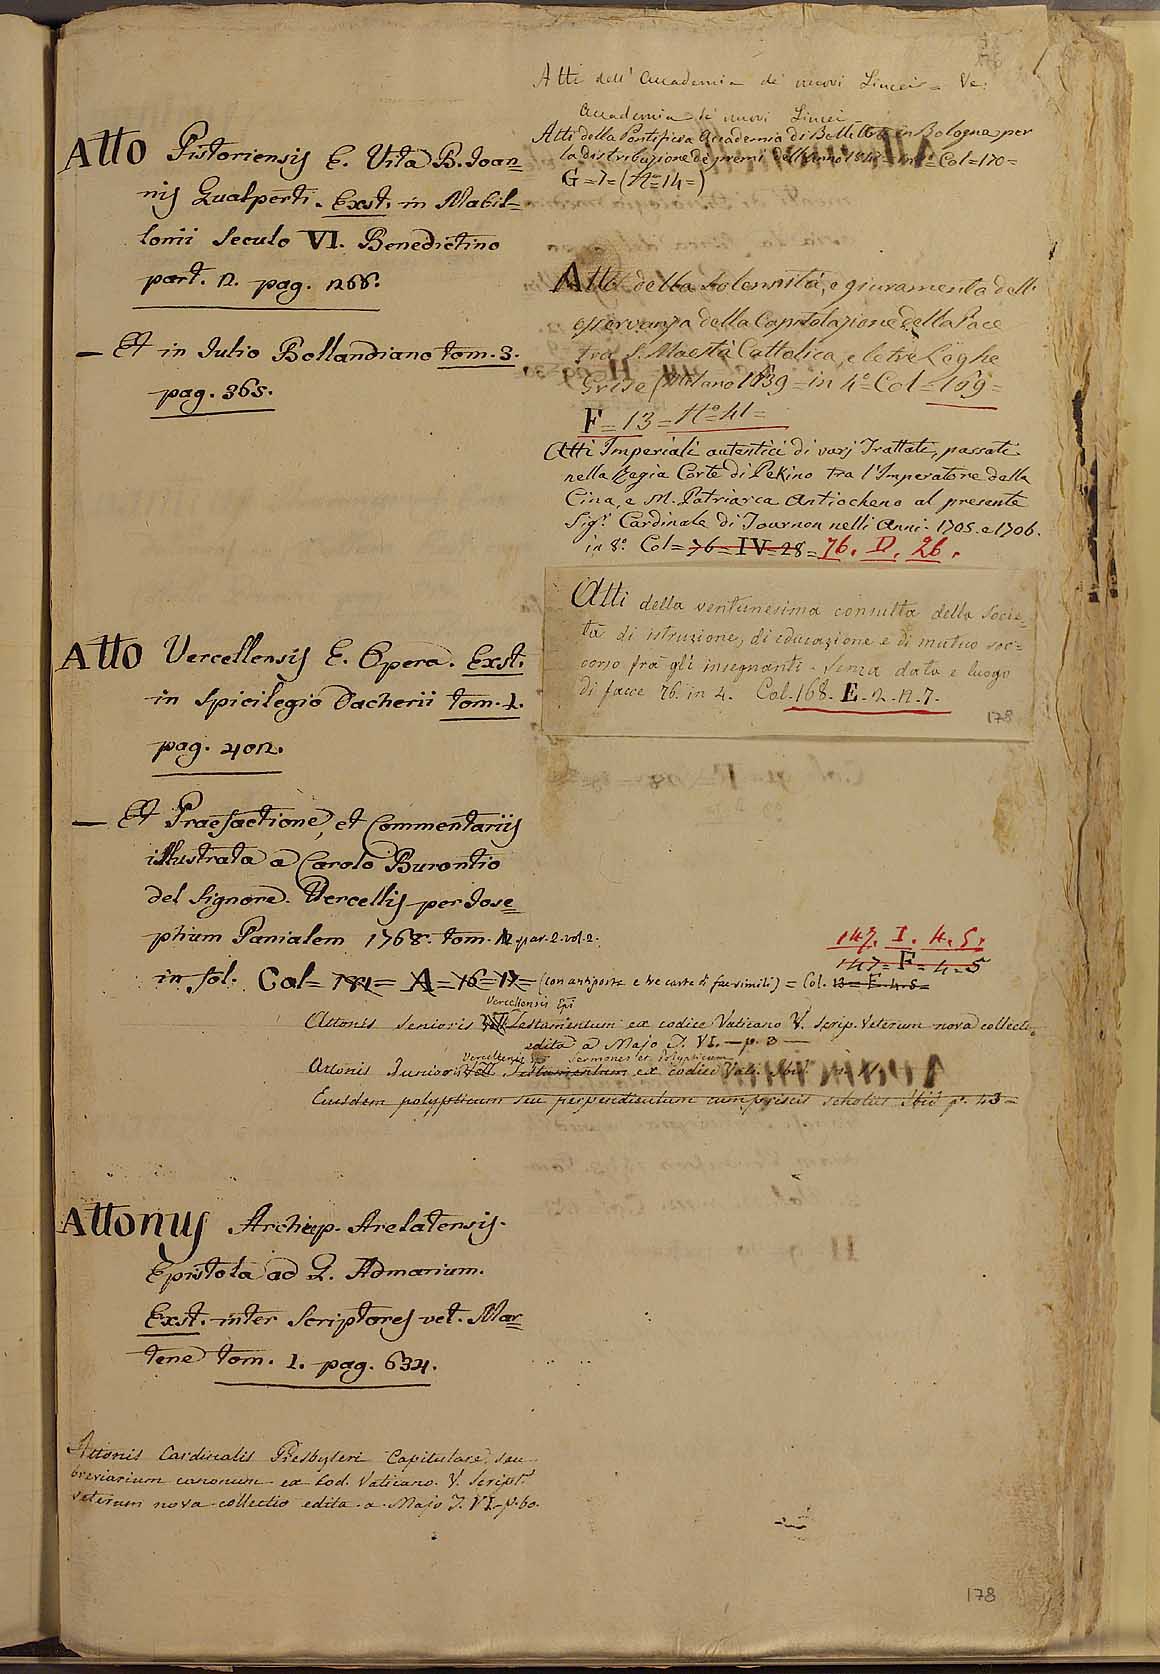 Atto Pistoriensis E. Vita B. Joan=
nis Gualperti. Exst. in Mabil=
lonii Seculo VI. Benedictino
part. 2. pag. 268.
— Et in Julio Bollandiano tom. 3.
pag. 365.
Atto Vercellensis E. Opera. Exst.
in Spicilegio Dacherii tom. 1.
pag. 402.
— Et Praefactione, et Commentariis
illustrata a Carolo Burontio
del Signore. Vercellis per Jose=
phum Panialem 1768. tom. par. 2. vol. 2.
in fol. Col= 181= A= 16= 17= (con antiporta e tre carte di facsimili) = Col. 13= F. 4. 5=
147. I. 4. 5.
147= F= 4=5
Vercellensis Epi
Attonis Senioris Testamentum ex codice Vaticano V. Scrip. Veterum nova collectio
edita a Majo T. VI. — p. 3 —
Vercellensis Epi Sermones et Polypticum
Attonis Junioris Testamentum ex codice Vat. Ibid.
Eiusdem polypticum seu perpendiculum cum priscis scholiis Ibid p. 43=
Attonus Archiep. Arelatensis.
Epistola ad L. Admarium.
Exst. inter Scriptores vet. Mar=
tene tom. 1. pag. 634.
Attonis Cardinalis Presbyteri Capitulare, seu
breviarium canonum ex Cod. Vaticano. V. Script.
veterum nova collectio edita a Majo T. VI. p. 60.
Atti dell' Accademia de' nuovi Lincei = Ve:
Accademia de' nuovi Lincei
Atti della Pontificia Accademia di Belle Arti in Bologna per
la distribuzione de premi dell'anno Col=170=
G=7=(N°=14=)
Atto della Solennità, e giuramento dell'
osservanza della Capitolazione della Pace
tra S. Maestà Cattolica, e le tre Leghe
Grise (Milano 1639= in 4° Col= 169=
F= 13= N° 41=
Atti Imperiali autentici di varj Trattati, passati
nella Regia Corte di Pekino tra l'Imperatore della
Cina, e M. Patriarca Antiocheno al presente
Sigr. Cardinale di Tournon nelli Anni. 1705. e 1706.
in 8° Col= 76= IV= 28= 76. D. 26.
Atti della ventunesima consulta della socie=
tà di istruzione, di educazione e di mutuo soc=
corso fra gli insegnanti. senza data e luogo
di facce 76. in 4. Col. 168. E. 2. n. 7.
178
178